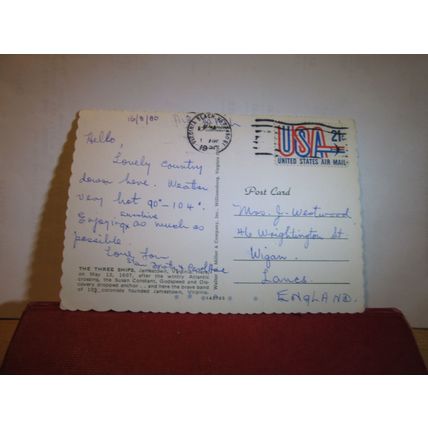 16/8/80
Hello,
Lovely Country
down here. Weather
very hot 90°-104°.
Enjoying sunshine as much as
possible.
Love from
THE THREE SHIPS, Jamestown,
on May 13, 1607, after the wintry Atlantic
crossing, the Susan Constant, Godspeed and Dis-
covery dropped anchor . . . and here the brave band
of 103 colonists founded Jamestown, Virginia.
Williamsburg, Virginia
VIRGINIA BEACH
1980
USA 21c
UNITED STATES AIR MAIL
Post Card
Mrs. J. Westwood
46 Wrightington St
Wigan.
Lancs.
ENGLAND.